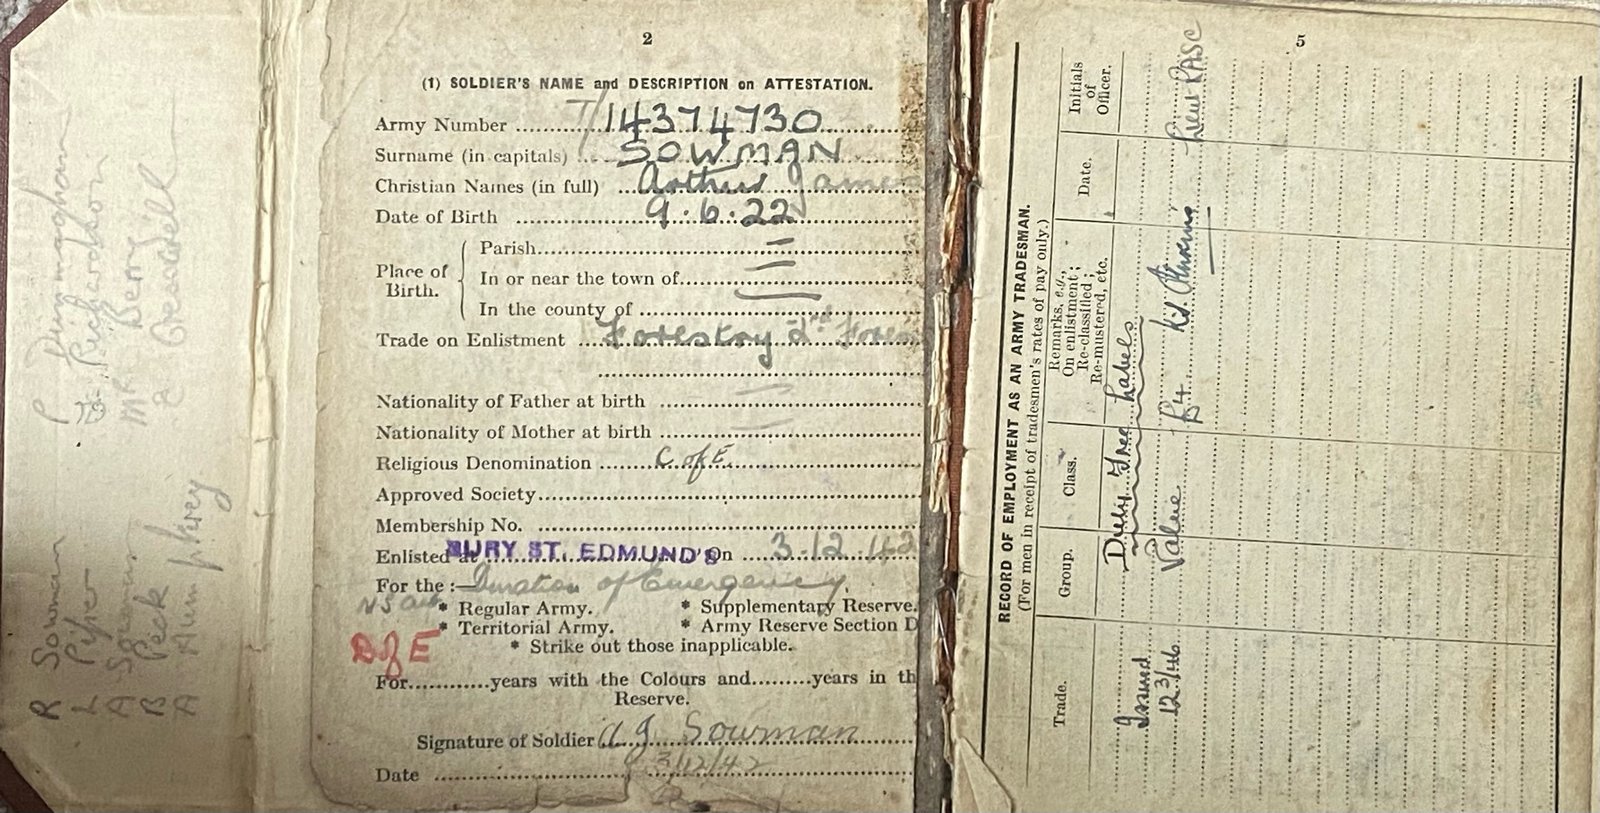 R Sowman P Dunnaghan
L Piper J. Richardson
A Sowman Mr Berry
B Peck
A Humphrey
2
(1) SOLDIER'S NAME and DESCRIPTION on ATTESTATION.
Army Number T/14374730
Surname (in capitals) SOWMAN
Christian Names (in full) Arthur James
Date of Birth 9.6.22
Place of Birth.
Parish
In or near the town of
In the county of
Trade on Enlistment Forestry
Nationality of Father at birth
Nationality of Mother at birth
Religious Denomination C of E.
Approved Society
Membership No.
Enlisted at BURY ST. EDMUND'S On 3.12.42
For the :— Duration of Emergency.
NS Act
* Regular Army. * Supplementary Reserve.
* Territorial Army. * Army Reserve Section D
D of E
* Strike out those inapplicable.
For years with the Colours and years in th
Reserve.
Signature of Soldier A J Sowman
Date 3/12/42
5
RECORD OF EMPLOYMENT AS AN ARMY TRADESMAN.
(For men in receipt of tradesmen's rates of pay only.)
Trade. Group. Class. Remarks, e.g., On enlistment; Re-classified; Re-mustered, etc. Date. Initials of Officer.
Issued Duty Free Labels
12/3/46 Value £4 Lieut RASC